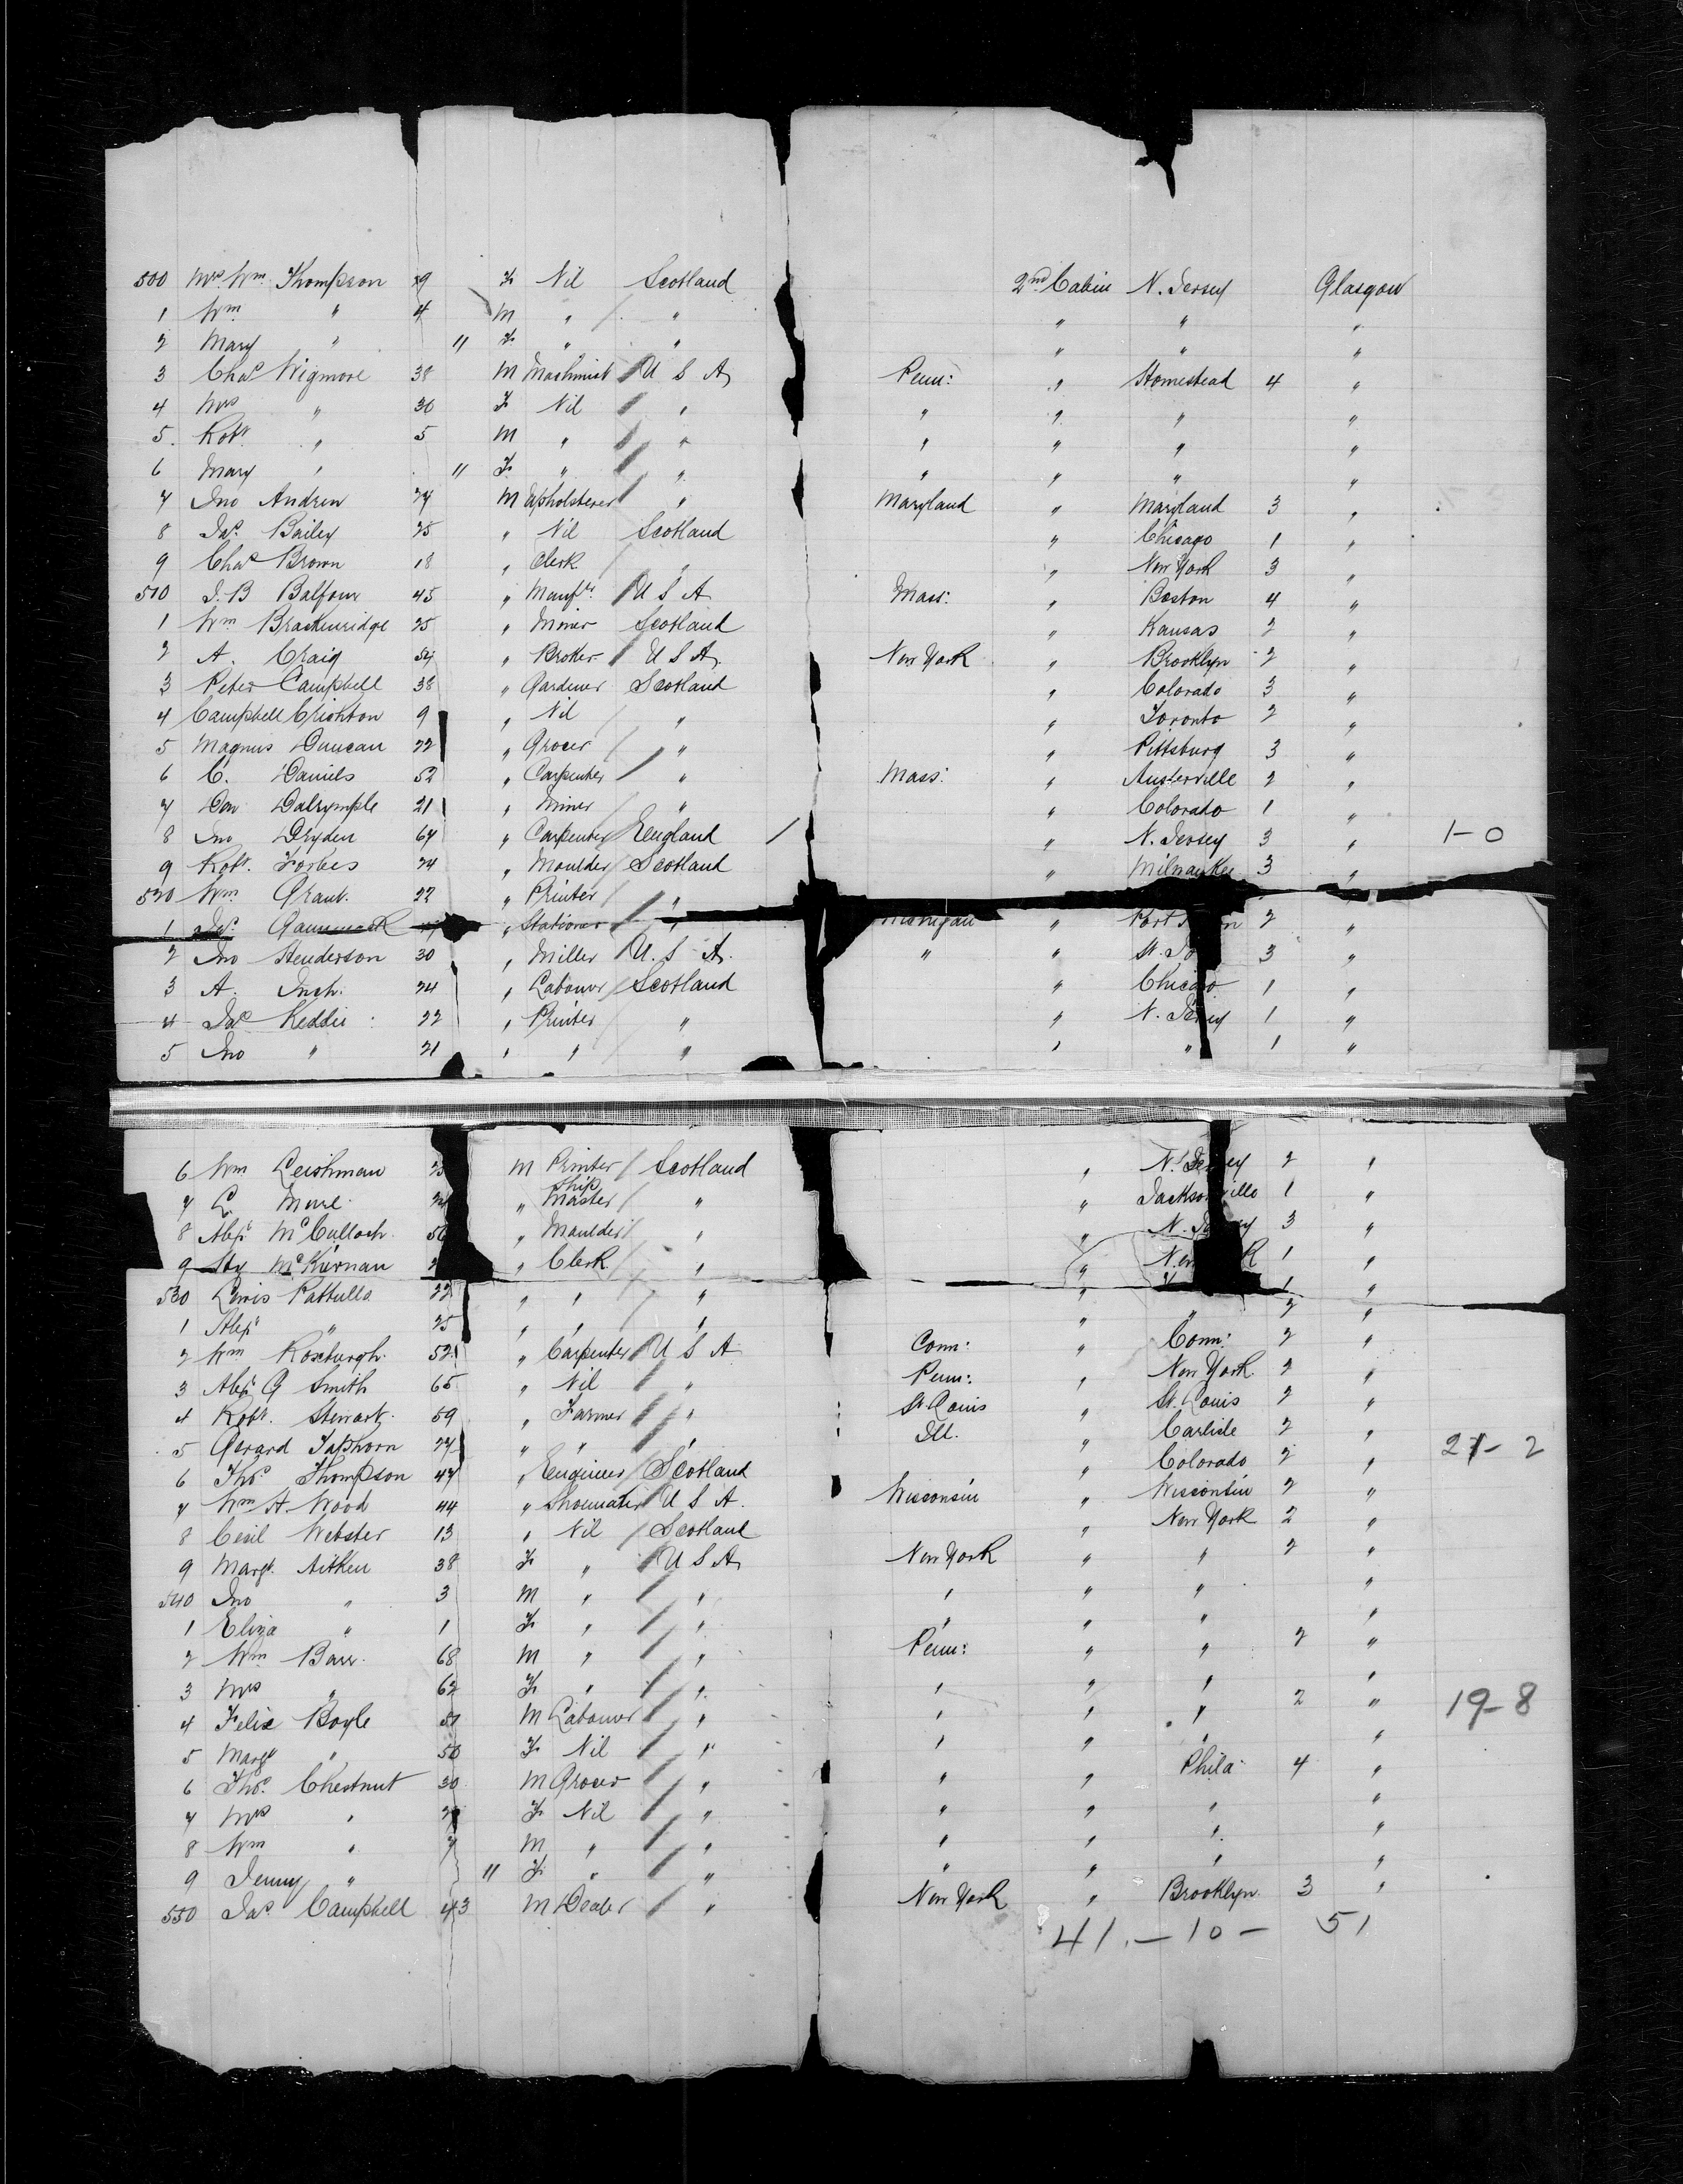 500 Mrs Wm Thompson 29 F Nil Scotland 2nd Cabin N. Jersey Glasgow
1 Wm " 4 M " / " " " "
2 Mary " 11 F " " " " "
3 Chas Wigmore 38 M Machinist / U S A Penn: " Homestead 4 "
4 Mrs " 30 F Nil / " " " " "
5. Robt. " 5 M " / " " " " "
6 Mary " 11 F " / " " " " "
7 Jno Andrew 24 M Upholsterer / " Maryland " Maryland 3 "
8 Jas. Bailey 25 " Nil Scotland " Chicago 1 "
9 Chas Brown 18 " Clerk / " " New York 3 "
510 J. B Balfour 45 " Manftr. / U S A Mass: " Boston 4 "
1 Wm Brackenridge 25 " Miner Scotland " Kansas 2 "
2 A. Craig 54 " Broker / U S A. New York " Brooklyn 2 "
3 Peter Campbell 38 " Gardener Scotland " Colorado 3 "
4 Campbell Crichton 9 " Nil / " " Toronto 2 "
5 Magnus Duncan 22 " Grocer / " " Pittsburg 3 "
6 C. Daniels 52 " Carpenter / " Mass: " 2 "
7 Dav Dalrymple 21 " Miner / " " Colorado 1 "
8 Jno Dryden 64 " Carpenter / England / " N. Jersey 3 " 1-0
9 Robt. Forbes 24 " Moulder / Scotland " Milwaukee 3 "
520 Wm Grant. 22 " Printer / "
1 Jas. " Stationer / " Michigan " Port 2 "
2 Jno Henderson 30 " Miller U. S A. " " St. 3 "
3 A. Inch. 24 " Labourer / Scotland " Chicago 1 "
4 Jas Keddie 22 " Printer / " " N. Jersey 1 "
5 Jno " 21 " " / " " " 1 "
6 Wm Leishman M Printer / Scotland " N. Jersey 2 "
7 L. Mure. " Ship Master / " " Jacksonville 1 "
8 Alexr McCulloch. " Moulder / " " N. Jersey 3 "
9 Hy McKiernan " Clerk / " " New York 1 "
530 Lewis Pattullo 22 " " / " " 1 "
1 Alexr " 25 " " " " " 2 "
2 Wm Roxburgh. 52 " Carpenter U S A Conn: " Conn: 2 "
3 Alexr G Smith 65 " Nil / " Penn: " New York. 2 "
4 Robt. Stewart. 59 " Farmer / " St Louis " St. Louis 2 "
5 Gerard Taphorn 24 " " / " Ill. " Carlisle 2 " 21-2
6 Thos Thompson 47 " Engineer / Scotland " Colorado 2 "
7 Wm H Wood 44 " Shoemaker / U S A. Wisconsin " Wisconsin 2 "
8 Cecil Webster 13 " Nil / Scotland " New York 2 "
9 Margt. Aitken 38 F " / U S A New York " " 2 "
540 Jno " 3 M " / " " " " "
1 Eliza " 1 F " / " " " " "
2 Wm Barr. 68 M " / " Penn: " " 2 "
3 Mrs " 62 F " / " " " " "
4 Felix Boyle 51 M Labourer / " " " " 2 " 19-8
5 Margt " 50 F Nil / " " " " "
6 Thos. Chestnut 30 M Grocer / " " " Phila 4 "
7 Mrs " F Nil / " " " " "
8 Wm " 7 M " / " " " " "
9 Jenny " 11 F " / " " " " "
550 Jas. Campbell 43 M Dealer / " New York " Brooklyn. 3 "
41.-10- 51